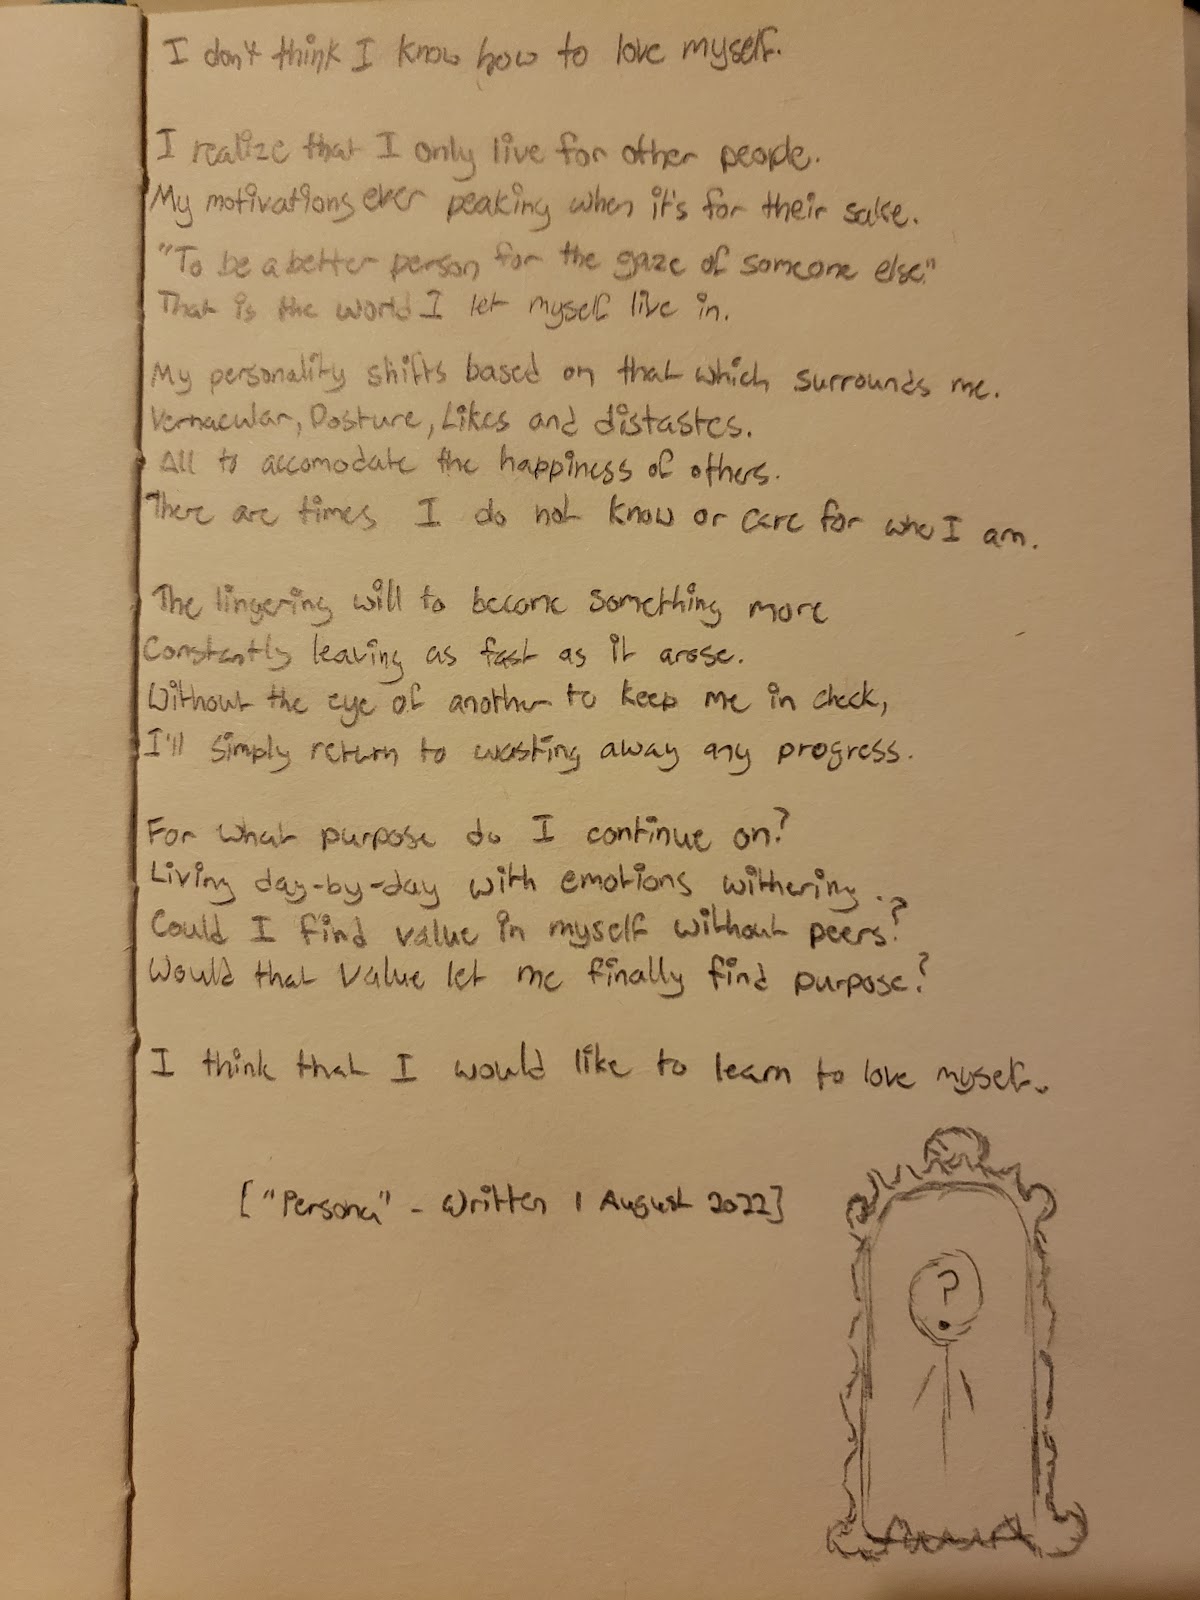 I don't think I know how to love myself.
I realize that I only live for other people.
My motivations ever peaking when it's for their sake.
"To be a better person for the gaze of someone else."
That is the world I let myself live in.
My personality shifts based on that which surrounds me.
Vernacular, Posture, Likes and distastes.
All to accomodate the happiness of others.
There are times I do not know or care for who I am.
The lingering will to become something more
Constantly leaving as fast as it arose.
Without the eye of another to keep me in check,
I'll simply return to wasting away any progress.
For what purpose do I continue on?
Living day-by-day with emotions withering..
Could I find value in myself without peers?
Would that value let me finally find purpose?
I think that I would like to learn to love myself.
["Persona" - Written 1 August 2022]
?